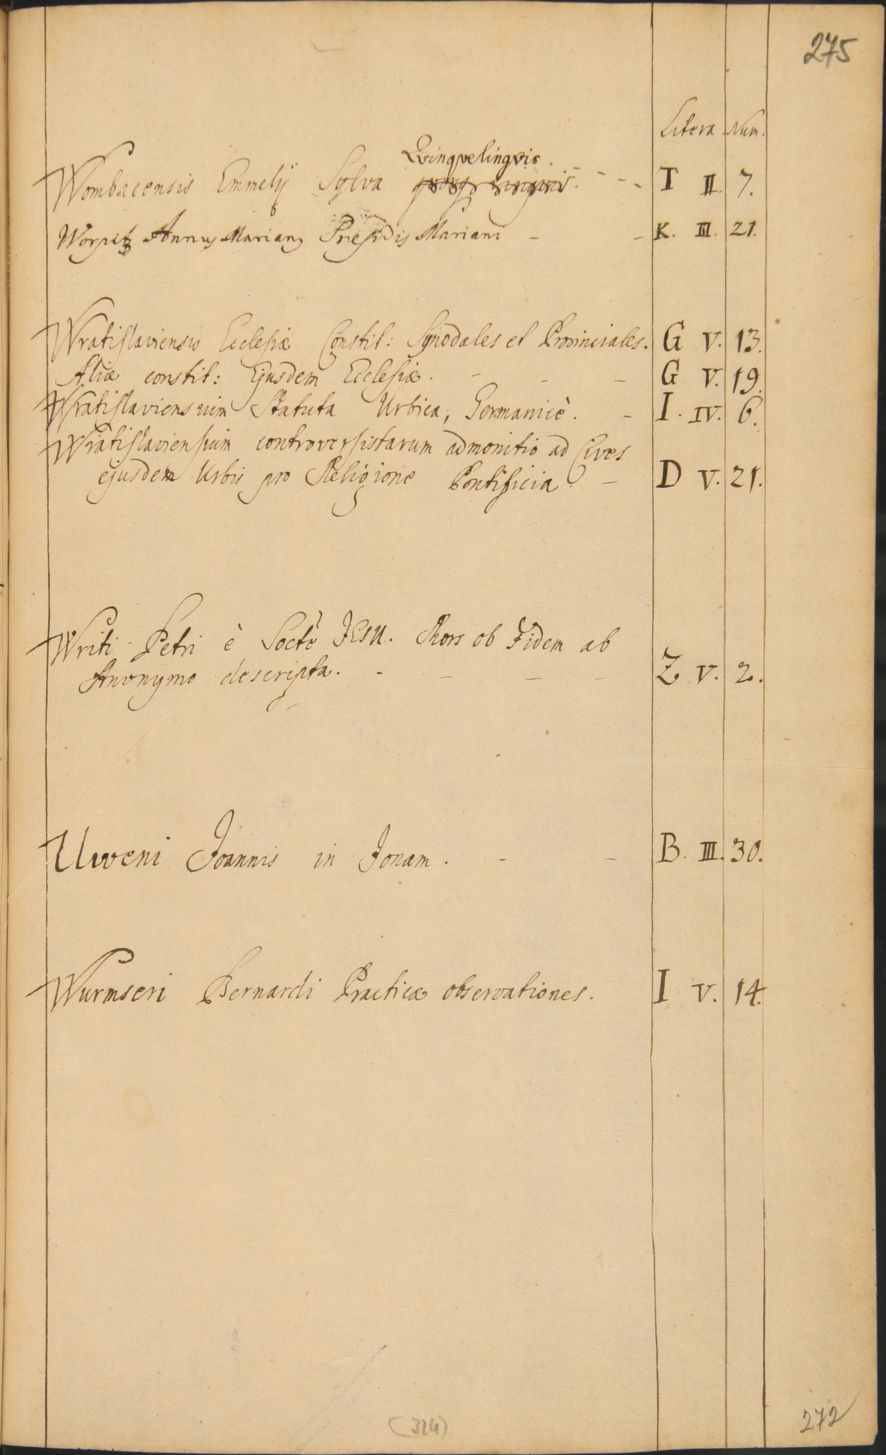 275
Litera Num.
Qvinqvelingvis.
Wombacensis Emmelij Sylva - - - T II 7.
Worpitz Annus Marianus Præsidis Mariani - - K. III. 21.
Wratislaviensis Ecclesiæ Constit: Synodales et Provinciales. G V. 13.
Aliæ constit: Ejusdem Ecclesiæ. - - - G V. 19.
Wratislaviensium Statuta Urbica, Germanicè. - I. IV. 6.
Wratislaviensium controversistarum admonitio ad Cives
ejusdem Urbis pro Religione Pontificia - D V. 21.
Writi Petri è Socte JESU. Mors ob Fidem ab
Anonymo descripta. - - - - Z V. 2.
Uweni Joannis in Jonam. - - B. III. 30.
Wurmseri Bernardi Practicæ observationes. I V. 14.
(324)
272